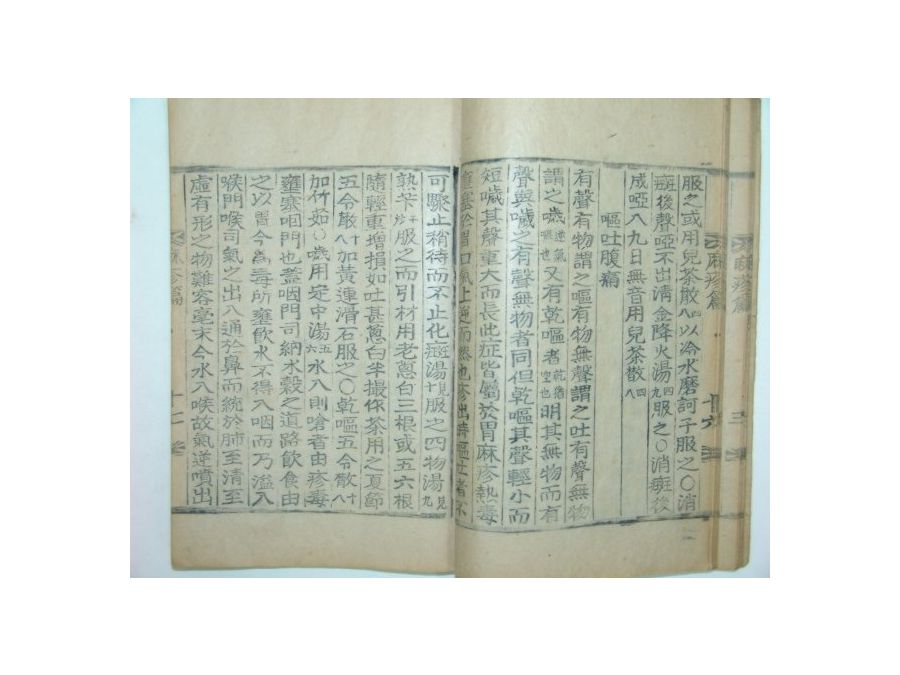 麻疹篇
服之或用兒茶散八四以冷水磨訶子服之○消
斑後聲啞不出淸金降火湯四九服之○消斑後
成啞八九日無音用兒茶散四八
嘔吐腹痛
有聲有物謂之嘔有物無聲謂之吐有聲無物
謂之噦噦逆氣也又有乾嘔者乾猶空也明其無物而有
聲與噦之有聲無物者同但乾嘔其聲輕小而
短噦其聲重大而長此症皆屬於胃麻疹熱毒
壅塞於胃口氣上逆而然也疹出時嘔吐者不
可驟止稍待而不止化斑湯見十服之四物湯見九
熟芐炒干服之而引材用老蔥白三根或五六根
隨輕重增損如吐甚蔥白半撮俢茶用之夏節
五令散十八加黃連滑石服之○乾嘔五令散十八
加竹茹○噦用定中湯五六水入則嗆者由疹毒
壅塞咽門也蓋咽門司納水穀之道路飮食由
之以胃今爲毒所壅飮水不得入咽而乃溢入
喉門喉司氣之出入通於鼻而統於肺至淸至
虛有形之物難容毫末今水入喉故氣逆噴出
麻疹篇